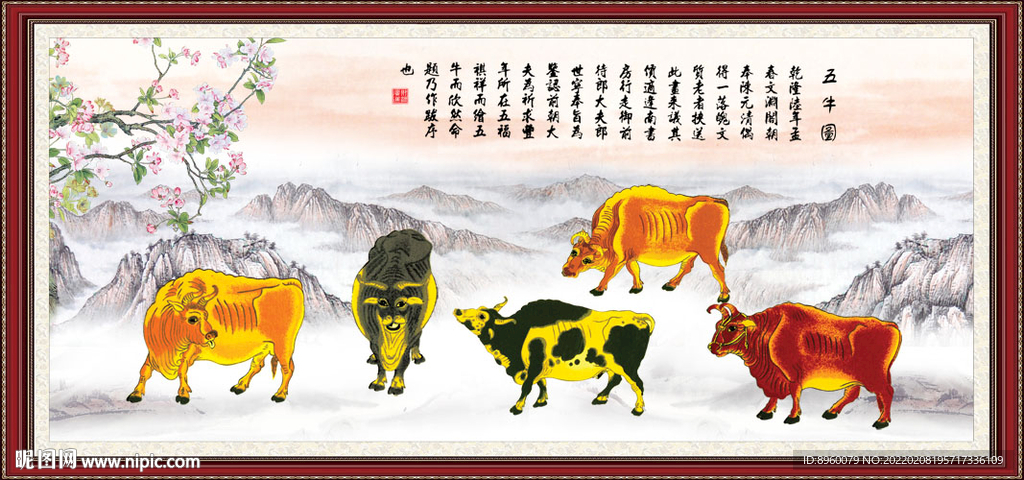 五牛圖
乾隆陸年孟
春文淵閣朝
奉陳元清偶
得一落魄文
質老者挾送
此畫来議其
價適逢南書
房行走御前
待郎大夫郎
世寜奉旨為
鍳認前朝大
夫為祈求豐
年所在五福
祺祥而繪五
牛而欣然命
題乃作跋序
也
昵图网 www.nipic.com
ID:8960079 NO:20220208195717336109